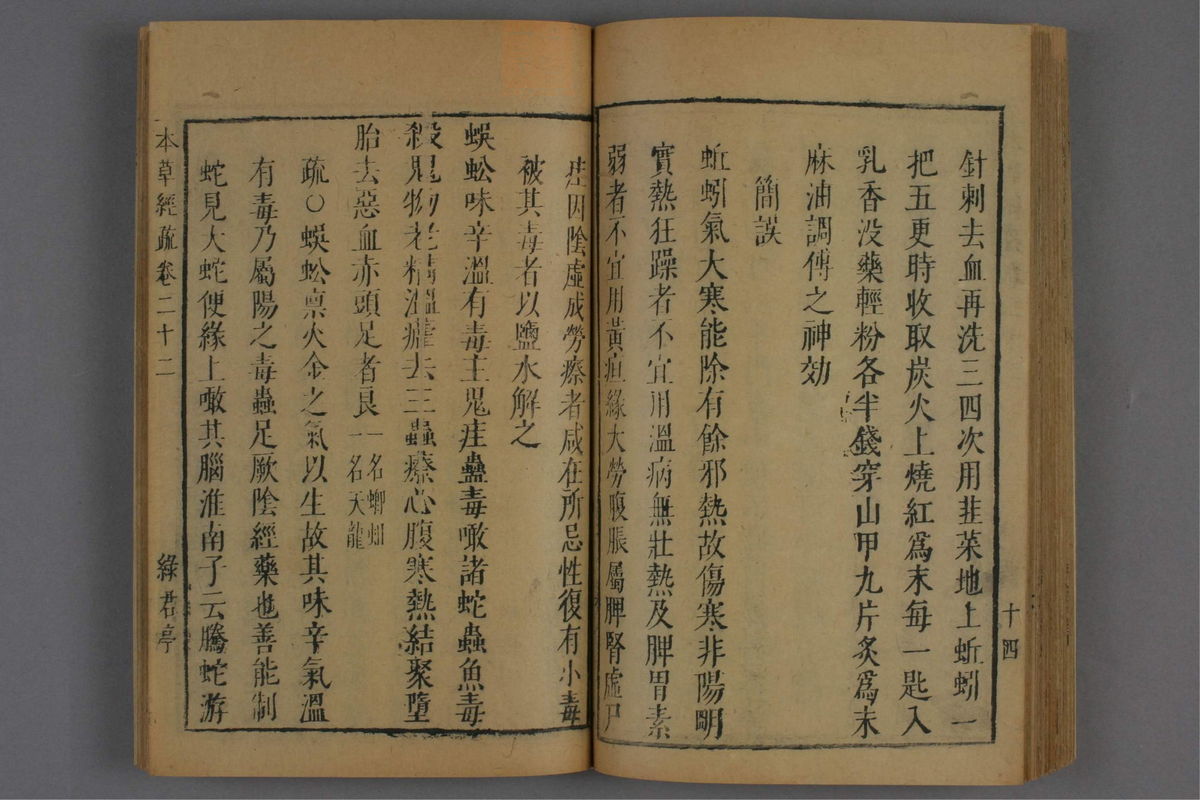 十四
針刺去血再洗三四次用韭菜地上蚯蚓一
把五更時收取炭火上燒紅爲末每一匙入
乳香没藥輕粉各半錢穿山甲九片炙爲末
麻油調傅之神効
簡誤
蚯蚓氣大寒能除有餘邪熱故傷寒非陽明
實熱狂躁者不宜用溫病無壯熱及脾胃素
弱者不宜用黃疸緣大勞腹脹屬脾腎虛尸
疰因陰虛成勞瘵者咸在所忌性復有小毒
被其毒者以鹽水解之
蜈蚣味辛溫有毒主鬼疰蠱毒噉諸蛇蟲魚毒
殺鬼物老精溫瘧去三蟲療心腹寒熱結聚墮
胎去惡血赤頭足者良一名蝍蛆
一名天龍
疏○蜈蚣禀火金之氣以生故其味辛氣溫
有毒乃屬陽之毒蟲足厥陰經藥也善能制
蛇見大蛇便緣上噉其腦淮南子云騰蛇游
本草經疏卷二十二
綠君亭